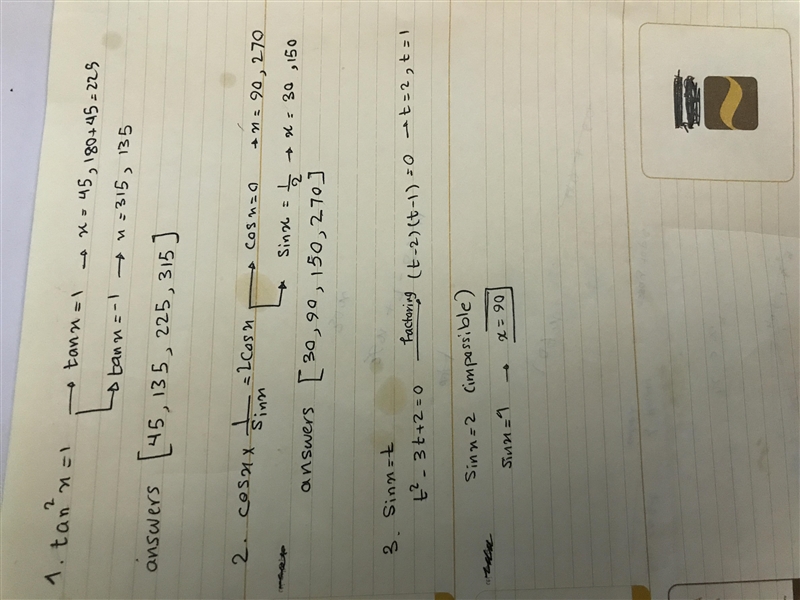 1. tan²x=1 → tanx=1 → x=45, 180+45=225
→ tanx=-1 → x=315, 135
answers [45, 135, 225, 315]
2. cosx × 1/sinx = 2cosx → cosx=0 → x=90, 270
→ sinx=1/2 → x=30, 150
answers [30, 90, 150, 270]
3. sinx=t
t²-3t+2=0 factoring (t-2)(t-1)=0 → t=2, t=1
sinx=2 (impossible)
sinx=1 → x=90